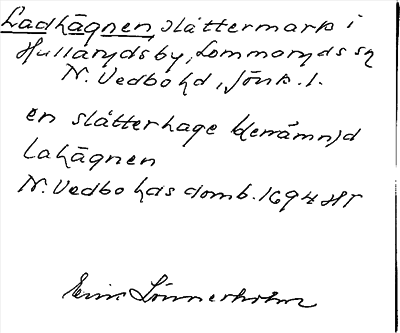 Ladhägnen, slåttermark i
Hullarydsby, Lommaryds sn
N. Vedbo hd, Jönk. l.
en slåtterhage benämnd
Lahägnen
N. Vedbo hds domb. 1694 HT
Einar Lönnerholm